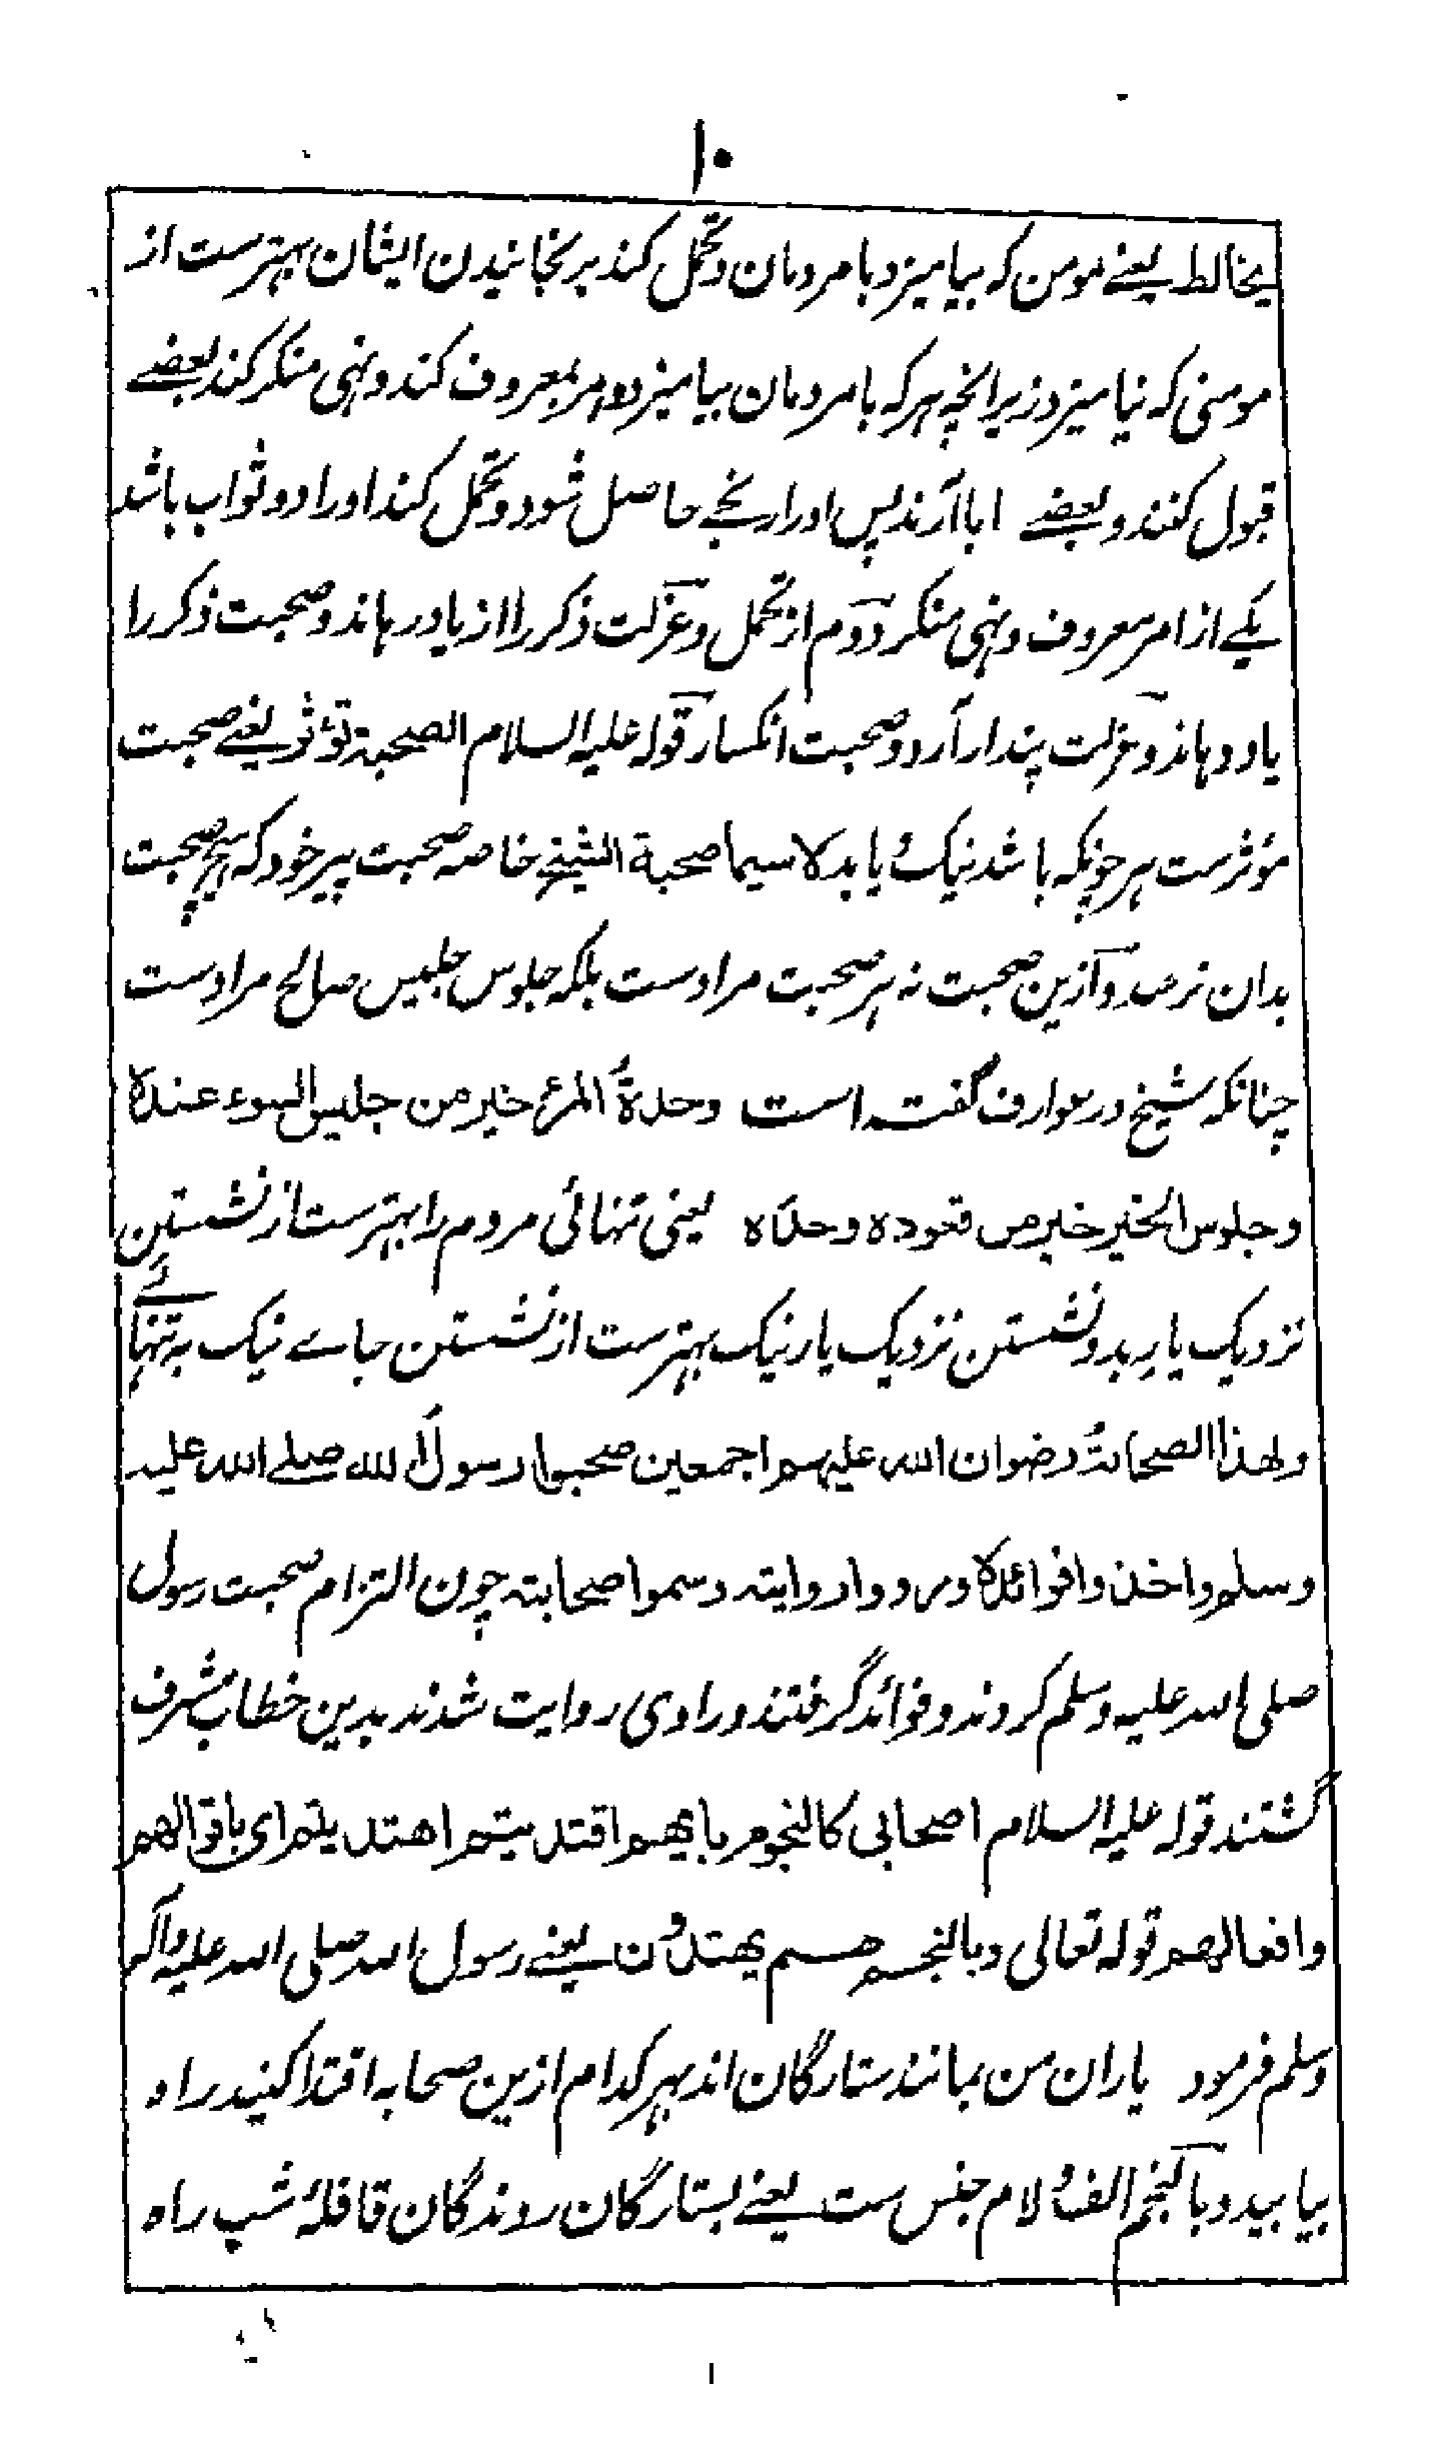 ۱۰
یخالط یعنے مومن کہ بیامیزد با مردمان و تحمل کند بر نجانیدن ایشان بہترست از
مومنی کہ نیامیزد زیرانچہ ہر کہ با مردمان بیامیزد و امر بمعروف کند و نہی منکر کند بعضے
قبول کنند و بعضے ابا آرند پس او را رنجے حاصل شود و تحمل کند او را دو ثواب باشد
یکے از امر معروف و نہی منکر دوم از تحمل و عزلت ذکر را از یاد رہاند و صحبت ذکر را
یاد دہاند و عزلت پندار آرد و صحبت انکسار قولہ علیہ السلام الصحبة تؤثر یعنے صحبت
مؤثرست ہر چونکہ باشد نیک و بد لا سیما صحبة الشیخ خاصہ صحبت پیر خود کہ ہیچ صحبت
بدان نرسد و ازین صحبت نہ ہر صحبت مرادست بلکہ جلوس جلیس صالح مرادست
چنانکہ شیخ در عوارف گفتہ است وحدةُ المرء خیر من جلیس السوء عندہ
و جلوس الخیر خیر من قعودہ وحدہ یعنی تنہائی مردم را بہترست از نشستن
نزدیک یارِ بد و نشستن نزدیک یار نیک بہترست از نشستن جاے نیک بہ تنہائے
ولھذا الصحابةُ رضوان اللہ علیہم اجمعین صحبوا رسولَ اللہ صلے اللہ علیہ
وسلم واخذوا فوائدہ ورووا روایتہ وسموا صحابتہ چون التزام صحبت رسول
صلی اللہ علیہ وسلم کردند و فوائد گرفتند و راوی روایت شدند بدین خطاب مشرف
گشتند قولہ علیہ السلام اصحابی کالنجوم بایھم اقتدیتم اھتدیتم ای باقوالھم
وافعالھم قولہ تعالی وبالنجم ھم یھتدون یعنے رسول اللہ صلی اللہ علیہ وآلہ
وسلم فرمود یاران من بمانند ستارگان اند بہر کدام ازین صحابہ اقتدا کنید راہ
بیابید و بالنجم الف و لام جنس ست یعنے بستارگان روندگان قافلۂ شب راہ